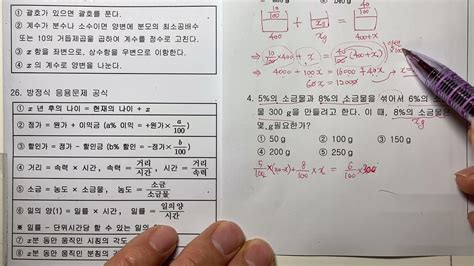 ① 괄호가 있으면 괄호를 푼다.
② 계수가 분수나 소수이면 양변에 분모의 최소공배수
또는 10의 거듭제곱을 곱하여 계수를 정수로 고친다.
③ x항을 좌변으로, 상수항을 우변으로 이항한다.
④ x의 계수로 양변을 나눈다.
26. 방정식 응용문제 공식
① x년 후의 나이 = 현재의 나이 + x
② 정가 = 원가 + 이익금 (a% 이익 = +원가× a/100)
③ 할인가 = 정가 - 할인금 (b% 할인 = -정가× b/100)
④ 거리 = 속력 × 시간, 속력 = 거리/시간, 시간 = 거리/속력
⑤ 소금 = 농도 × 소금물, 농도 = 소금/소금물
⑥ 일의 양(1) = 일률 × 시간, 일률 = 일의양/시간
※ 일률 - 단위시간당 할 수 있는 일의 양
⑦ x분 동안 움직인 시침의 각도
⑧ x분 동안 움직인 분침의
10/100 + = 
400 xg 400+x
⇒ 10/100 × 400 + x = 40/100 (400+x)
⇒ 4000 + 100x = 16000 + 40x → x =
60x = 12000
4. 5%의 소금물과 8%의 소금물을 섞어서 6%의 소금
물 300 g을 만들려고 한다. 이 때, 8%의 소금물은
몇 g 필요한가? xg
① 50 g ② 100 g ③ 150 g
④ 200 g ⑤ 250 g
5/100 × (300-x) + 8/100 × x = 6/100 × 300